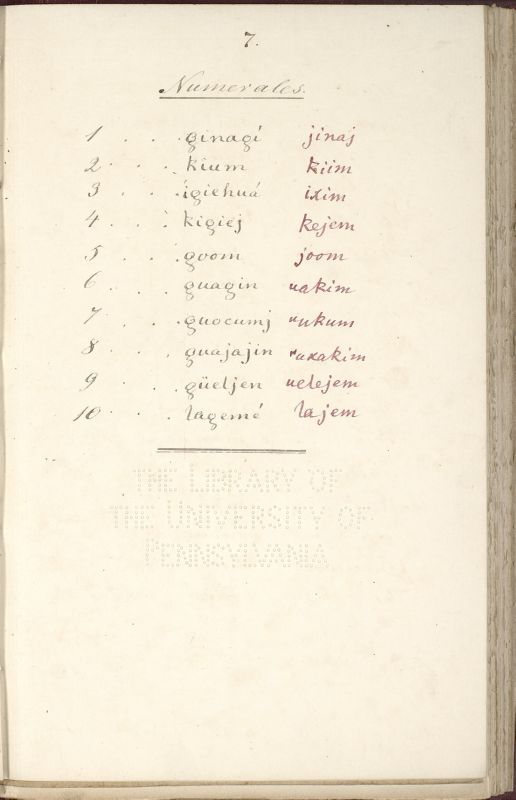 7.
Numerales.
1 . . . ginagí jinaj
2 . . . kium kiim
3 . . . ígiehuá ixim
4 . . . kigiej kejem
5 . . . goom joom
6 . . . guagin uakim
7 . . . guocumj uukum
8 . . . guajajin uaxakim
9 . . . güeljen uelejem
10 . . . lagemé lajem
THE LIBRARY OF
THE UNIVERSITY OF
PENNSYLVANIA